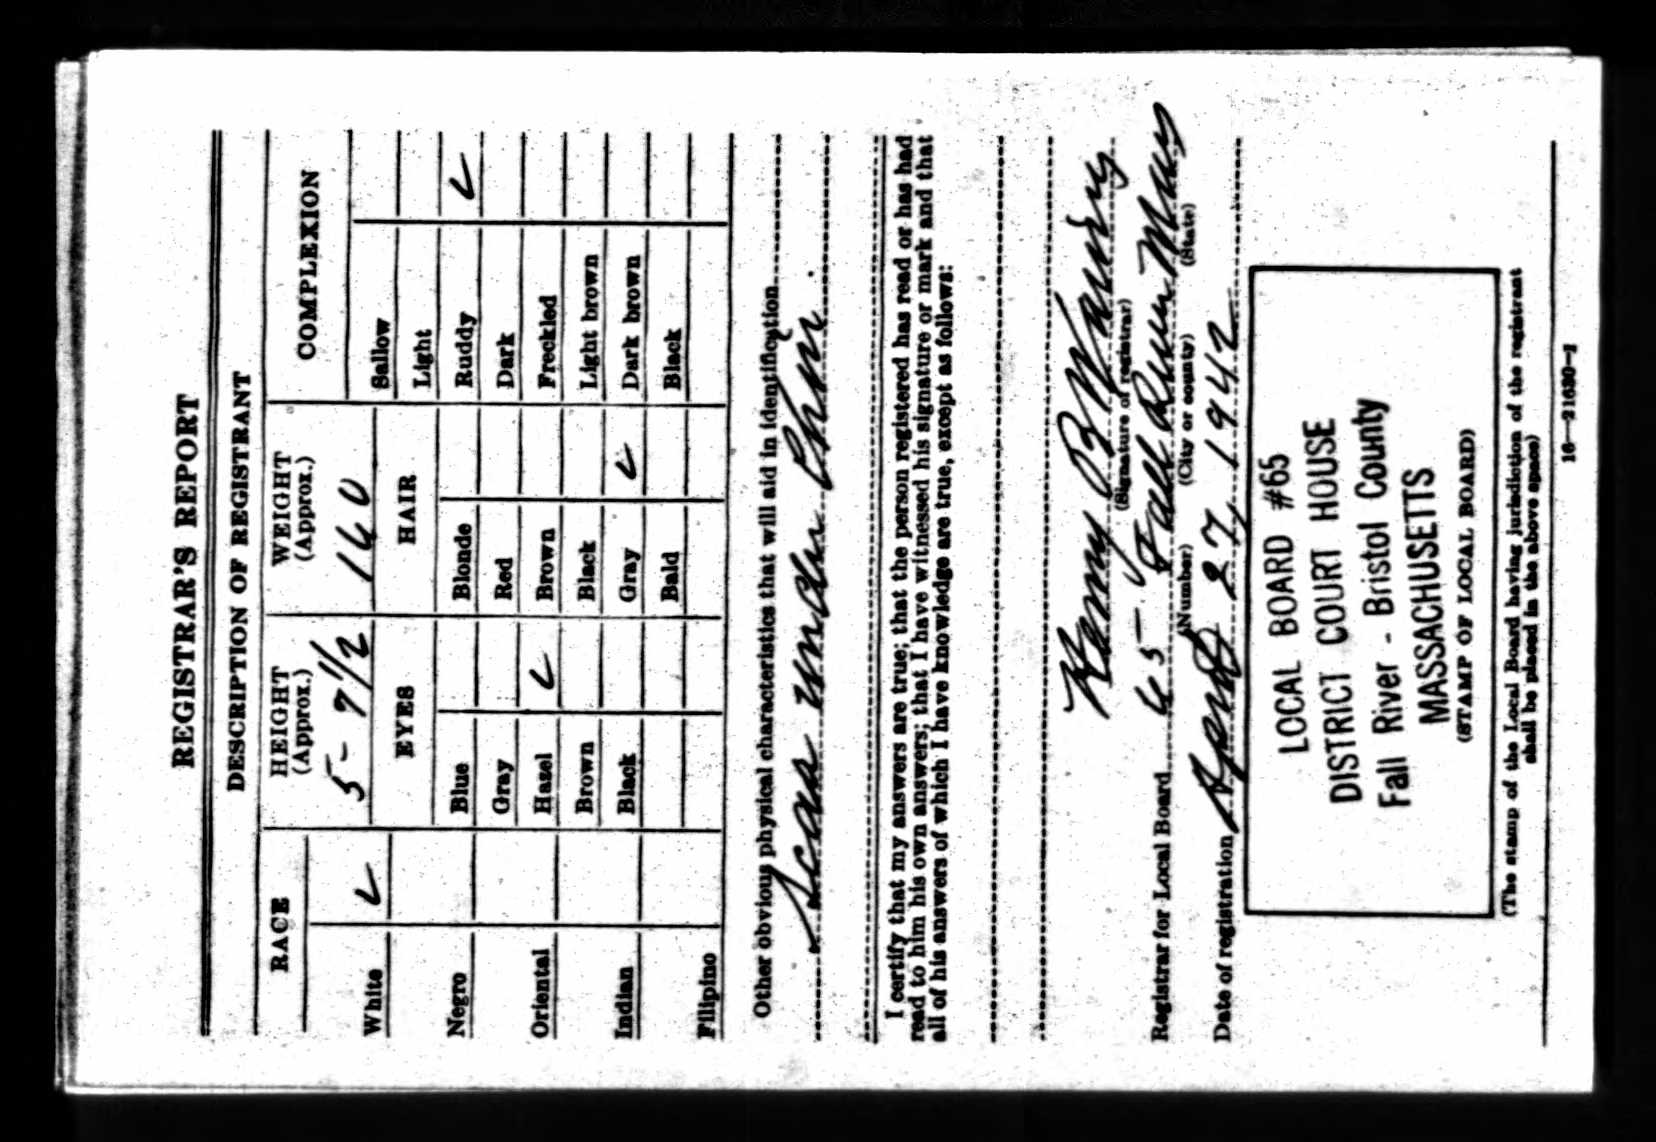 REGISTRAR'S REPORT
DESCRIPTION OF REGISTRANT
RACE HEIGHT (Approx.) WEIGHT (Approx.) COMPLEXION
5-7 1/2 160
White ✓ EYES HAIR Sallow
Light
Negro Blue Blonde Ruddy ✓
Gray Red Dark
Oriental Hazel ✓ Brown Freckled
Brown Black Light brown
Indian Black Gray ✓ Dark brown
Bald Black
Filipino
Other obvious physical characteristics that will aid in identification
Scar under Chin.
I certify that my answers are true; that the person registered has read or has had
read to him his own answers; that I have witnessed his signature or mark and that
all of his answers of which I have knowledge are true, except as follows:
Henry B
(Signature of registrar)
Registrar for Local Board 65 Fall River Mass
(Number) (City or county) (State)
Date of registration April 27, 1942
LOCAL BOARD #65
DISTRICT COURT HOUSE
Fall River - Bristol County
MASSACHUSETTS
(STAMP OF LOCAL BOARD)
(The stamp of the Local Board having jurisdiction of the registrant
shall be placed in the above space)
16—21630-2